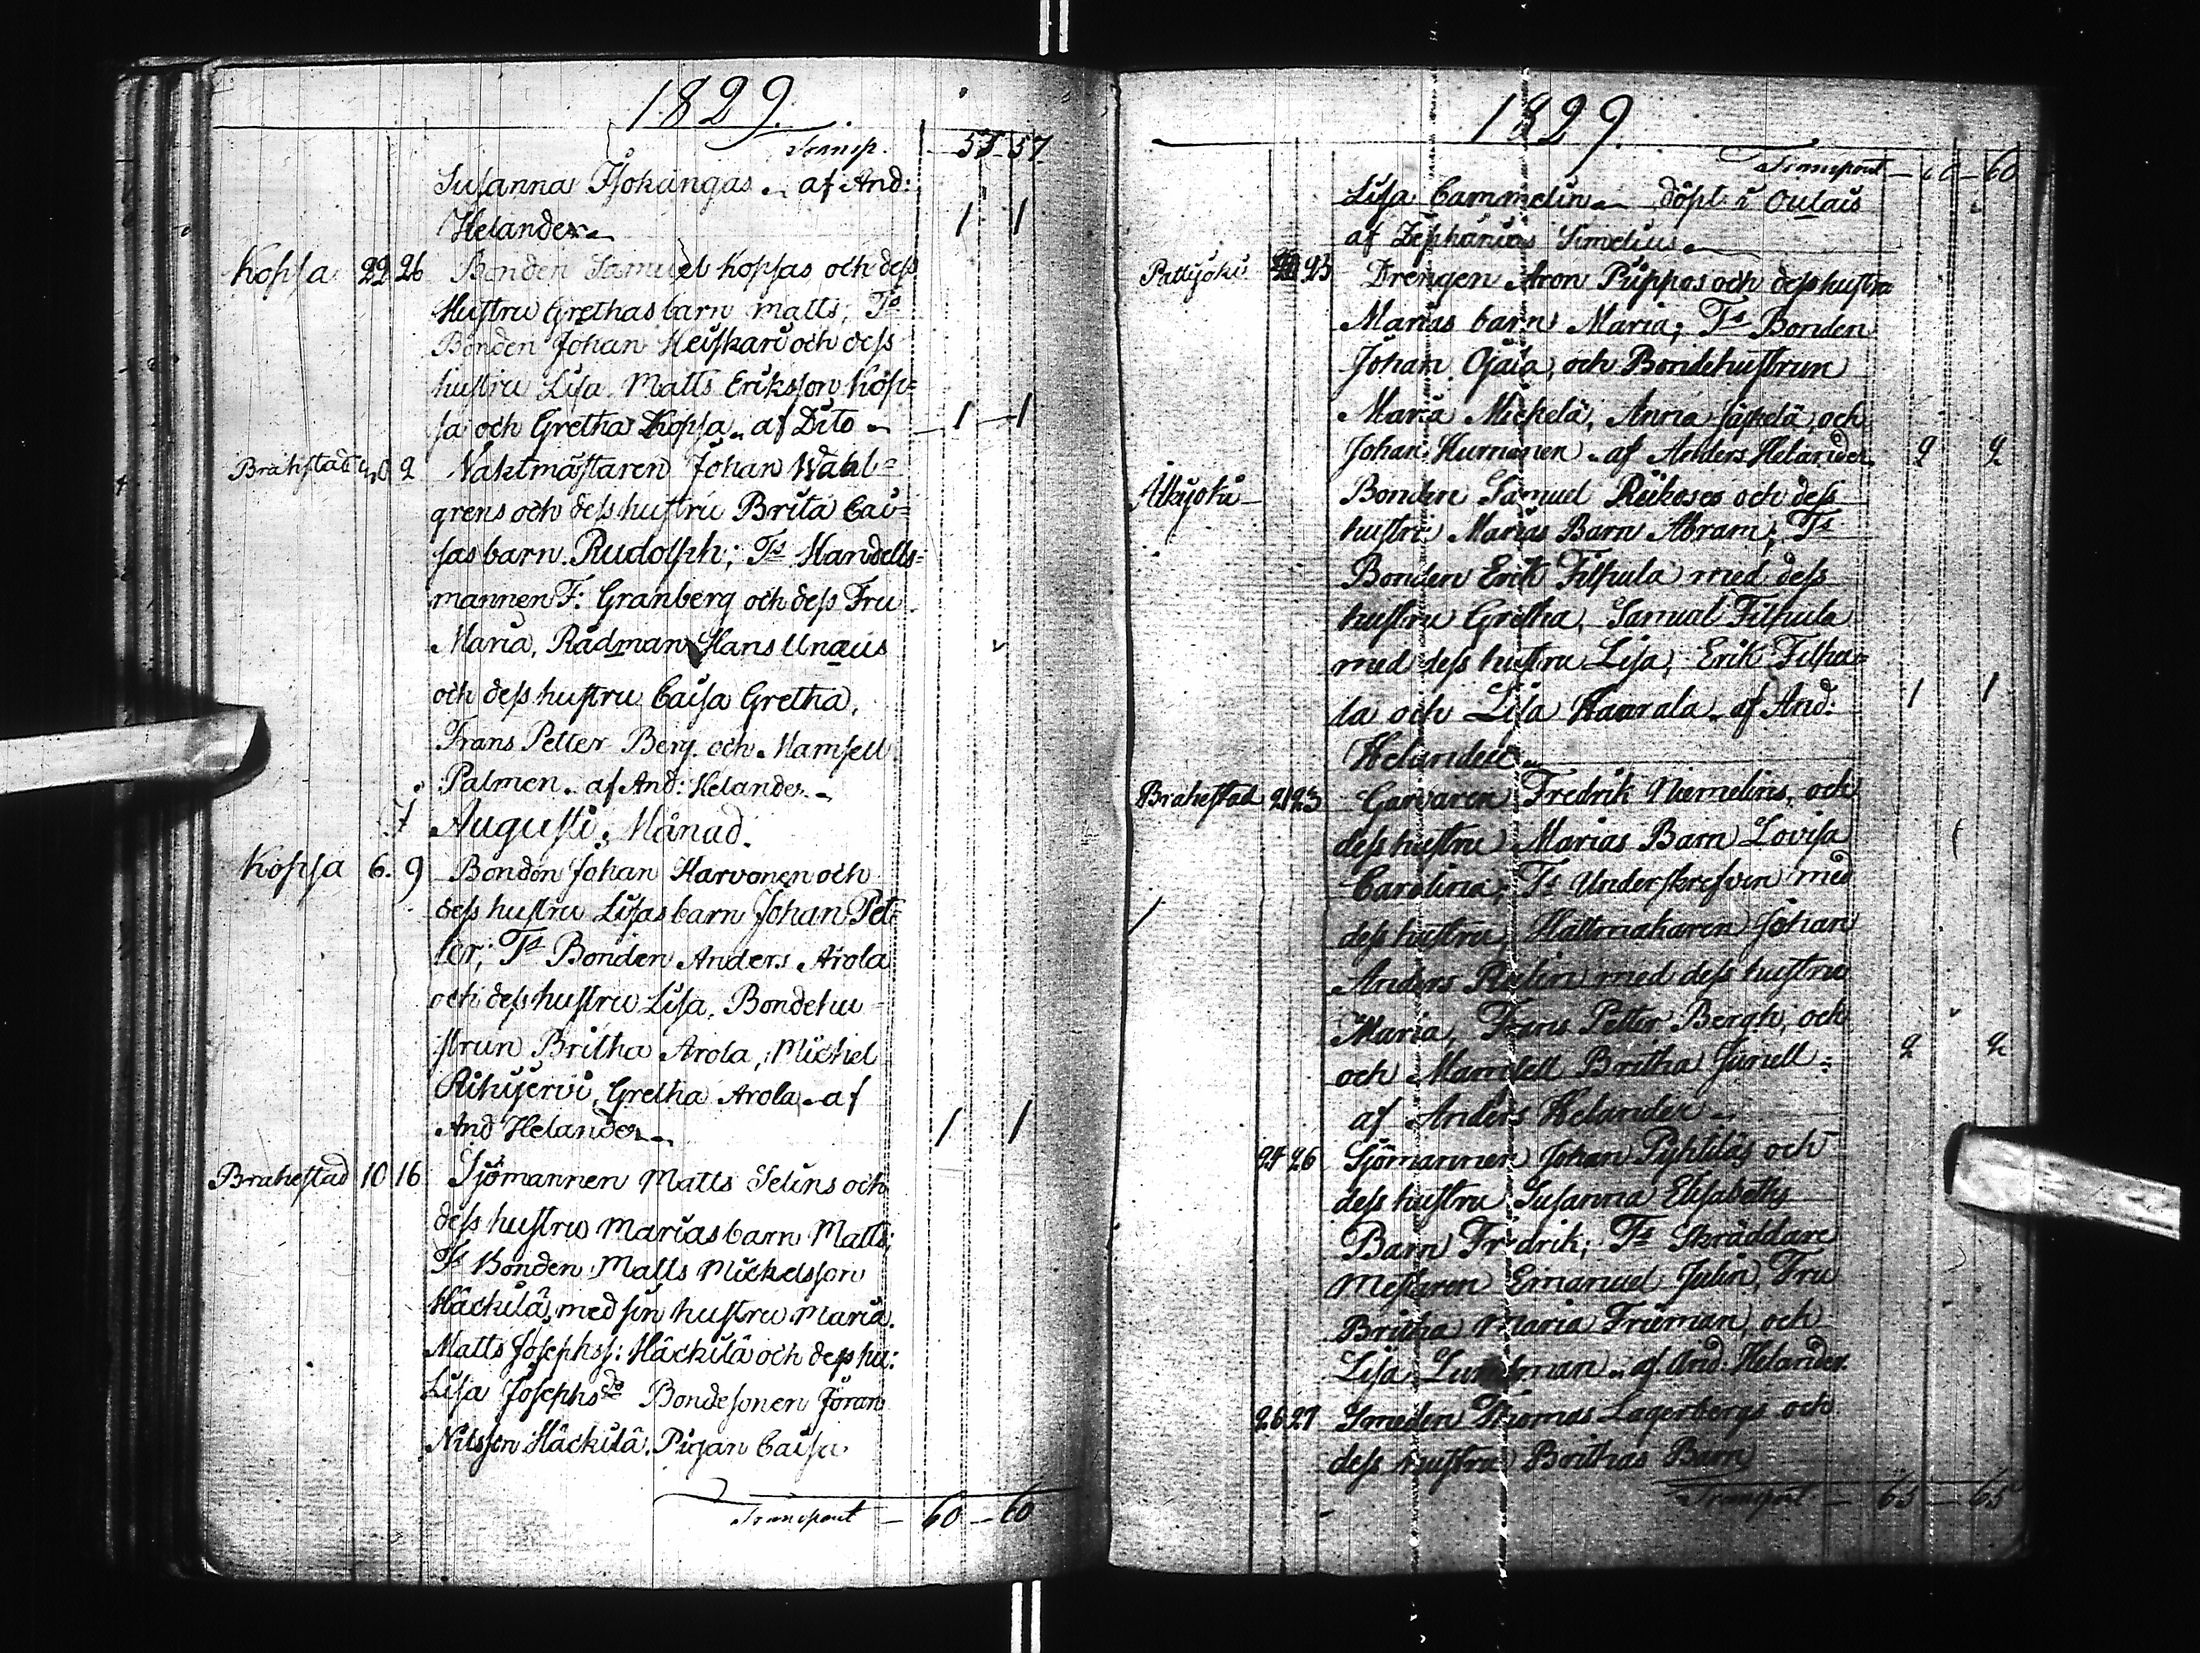 1829.
Transp. 55 57
Susanna Tjokangas. af And:
Helander 1 1
Kopsa 22 26 Bonden Samuel Kopsas och dess
Hustru Grethas barn Matts; Ts
Bonden Johan Heiskari och dess
hustru Lisa. Matts Eriksson Kop=
sa och Gretha Kopsa. af Dito 1 1
Brahestad 2 Vaktmästaren Johan Wahl=
grens och dess hustru Brita Cai=
sas barn Rudolph; Ts Handells=
mannen F: Granberg och dess Fru
Maria, Rådman Hans Unaeus
och dess hustru Caisa Gretha,
Frans Petter Berg. och Mamsell
Palmen. af And: Helander.
Augusti Månad.
Kopsa 6. 9 Bonden Johan Harvonen och
dess hustru Lisas barn Johan Pet=
ter; Ts Bonden Anders Arola
och dess hustru Lisa, Bondehu
strun Britha Arola, Michel
Rikujervi, Gretha Arola af
And Helander 1 1
Brahestad 10 16 Sjömannen Matts Selins och
dess hustru Marias barn Matts;
Ts Bonden Matts Mickelsson
Häckilä med sin hustru Maria.
Matts Josephss: Häckilä och dess hu:
Lisa Josephsdr Bondesonen Jöran
Nilsson Häckilä. Pigan Caisa
Transport 60 60
1829.
Transport 60 60
Lisa Cammelin döpt i Oulais
af Zephanias Simelius
Pattijoki 23 Drengen Aron Pippos och dess hustru
Marias barn Maria; Ts Bonden
Johan Ojala, och Bondehustrun
Maria Mickelä, Anna och
Johan Humonen af Anders Helander 2 2
Bonden Samuel och dess
hustru Marias Barn Abram; Ts
Bonden Erik Filpula med dess
hustru Gretha, Samuel Filpula
med dess hustru Lisa, Erik Filpu=
la och Lisa Haarala af And: 1 1
Helander
Brahestad 21 23 Garvaren Fredrik Niemelins, och
dess hustru Marias Barn Lovisa
Carolina; Ts Underskrefven med
dess hustru, Hattmakaren Johan
Anders med dess hustru
Maria, Frans Petter Bergh, och
och Mamsell Britha Junell: 2 2
af Anders Helander
24 26 Sjömannen Johan Pyhtiläs och
dess hustru Susanna Elisabeths
Barn Fredrik; Ts Skräddare
Mestaren Emanuel Julin, Fru
Britha Maria Friman, och
Lisa af And. Helander.
26 27 Smeden Thomas Lagerbergs och
dess hustru Brithas Barn
Transport 65 65